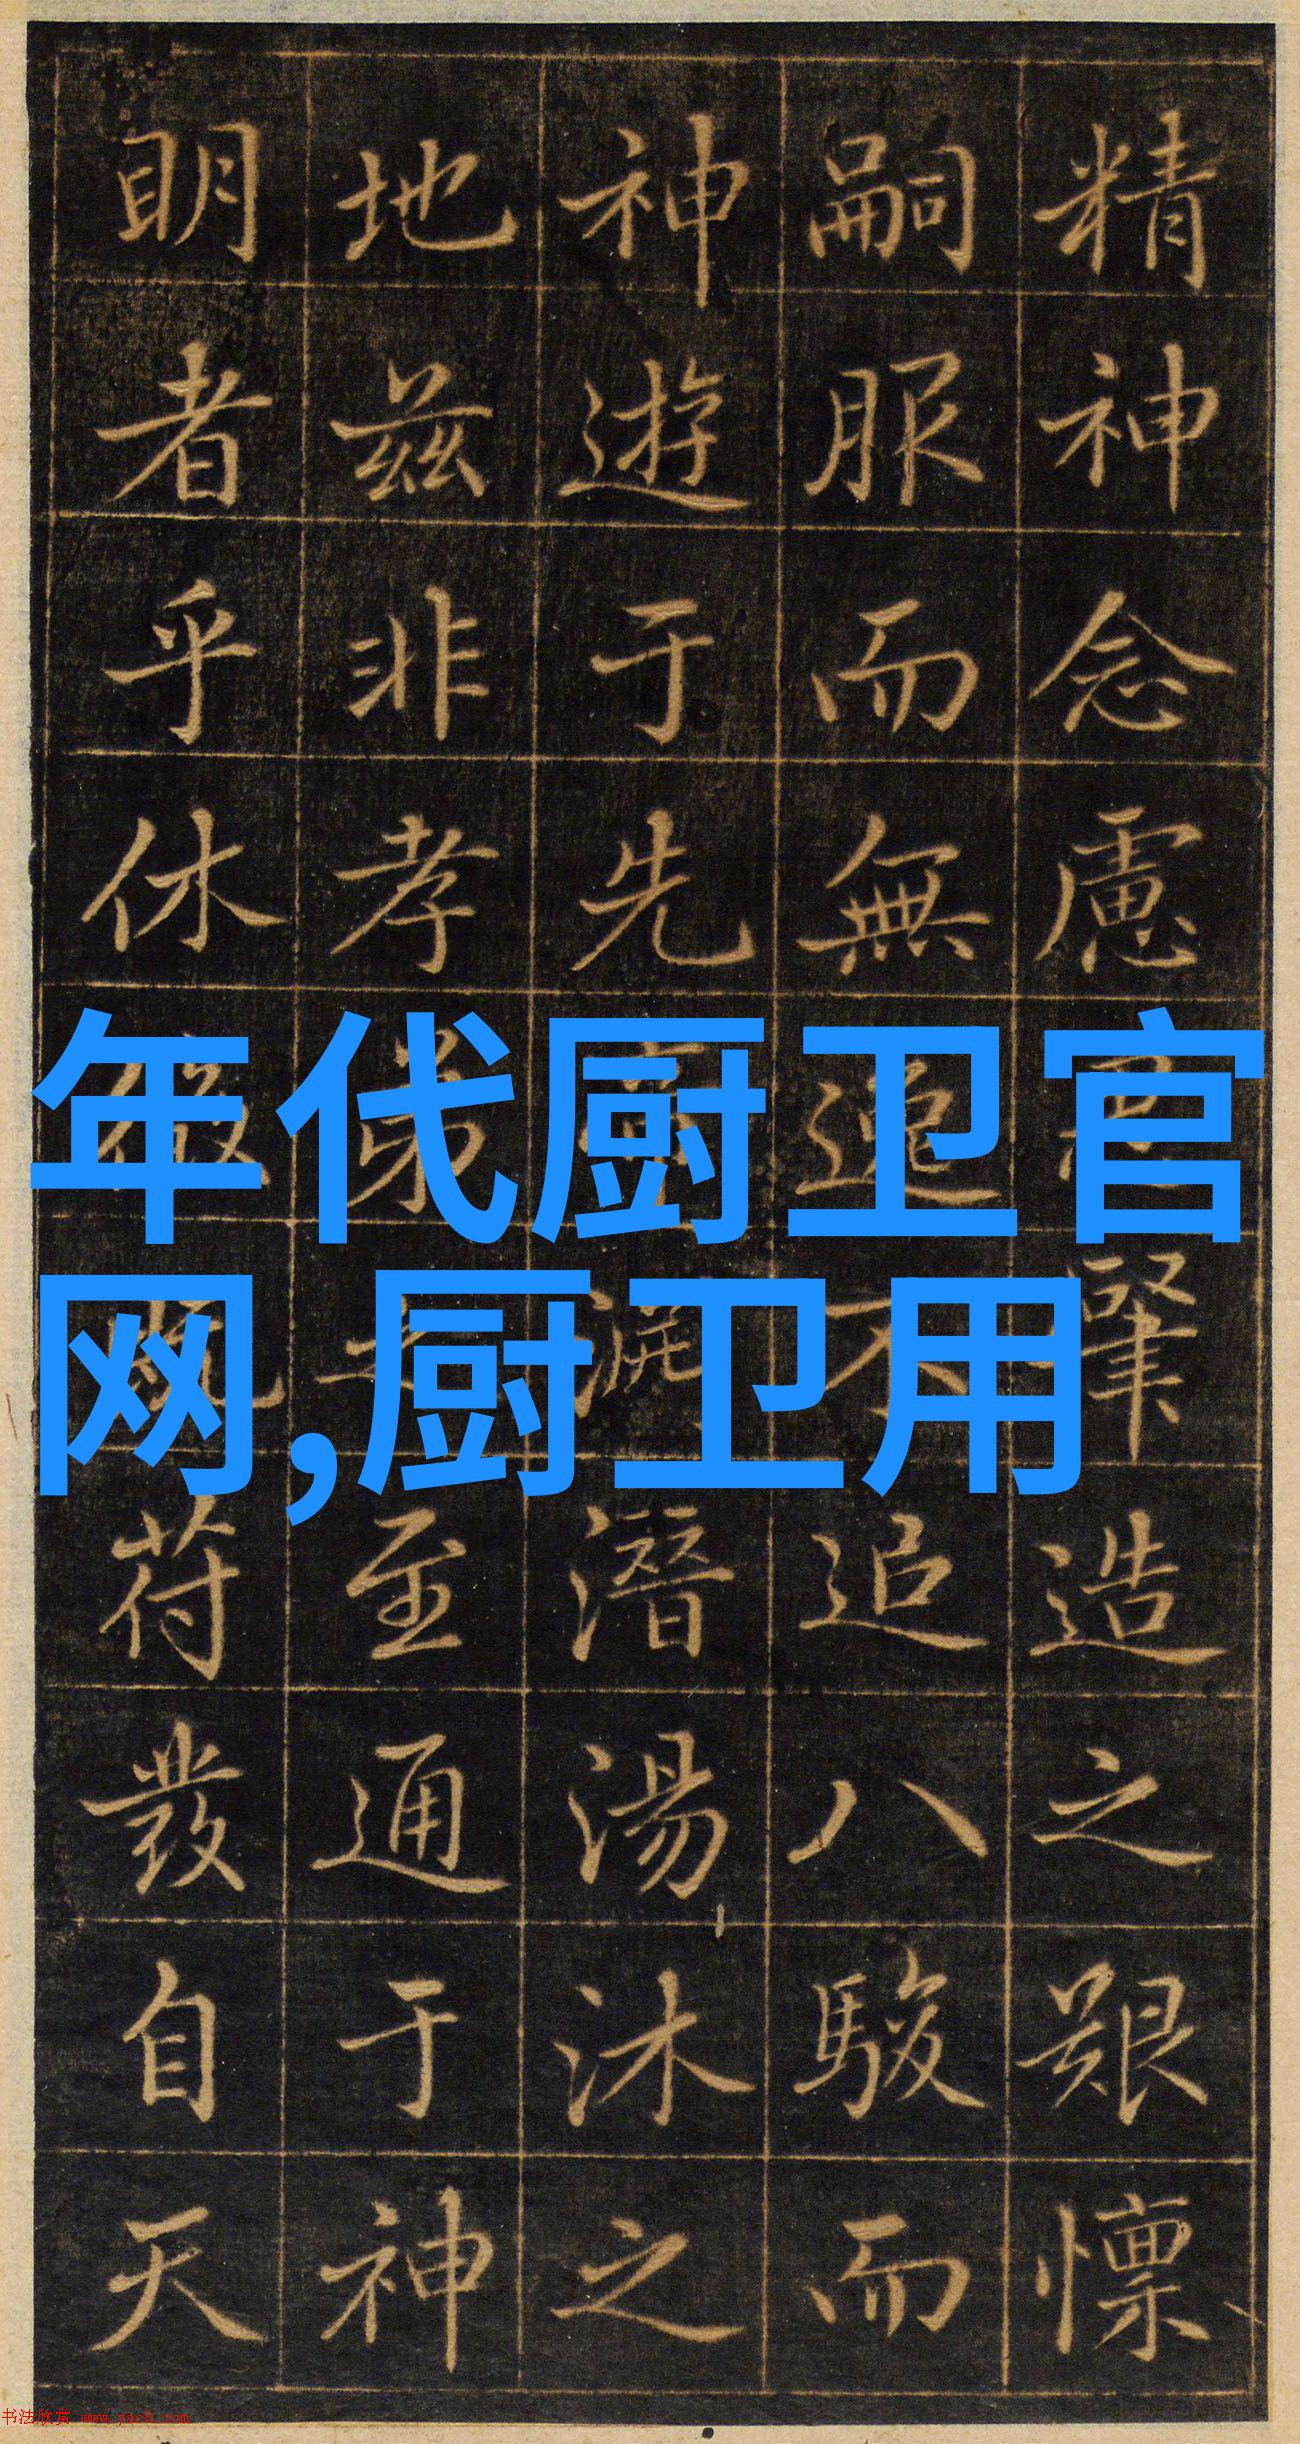 精神念慮肇造之艱懍
嗣服而無逸不追八駿而
神遊于先潛湯沐之
地茲非孝弟之至通于神
明者乎休徵既符發自天
年代厨卫官
网,厨卫用
书法欣赏 www.yac8.com